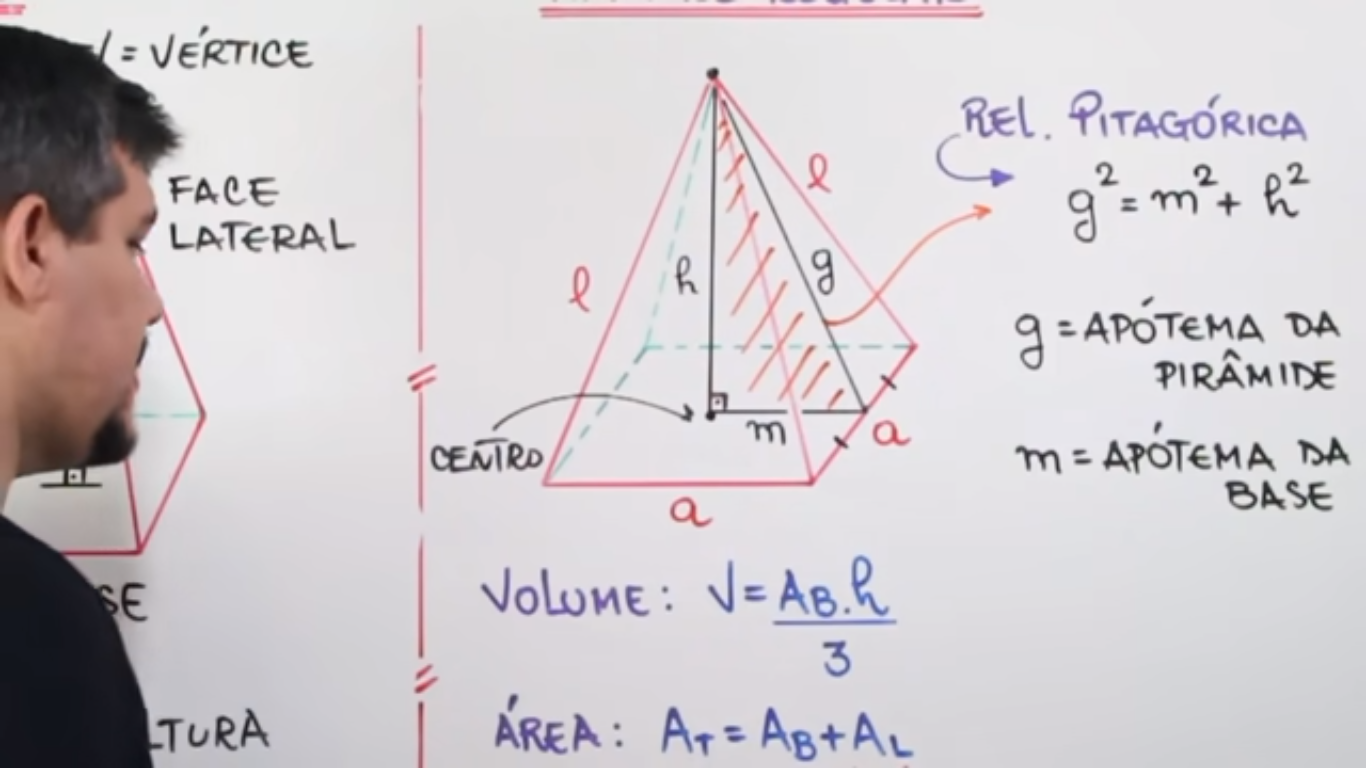 = VÉRTICE
FACE
LATERAL
CENTRO
l
l
h
g
m
a
a
REL. PITAGÓRICA
g² = m² + h²
g = APÓTEMA DA
PIRÂMIDE
m = APÓTEMA DA
BASE
VOLUME: V = AB.h
3
ÁREA: AT = AB + AL